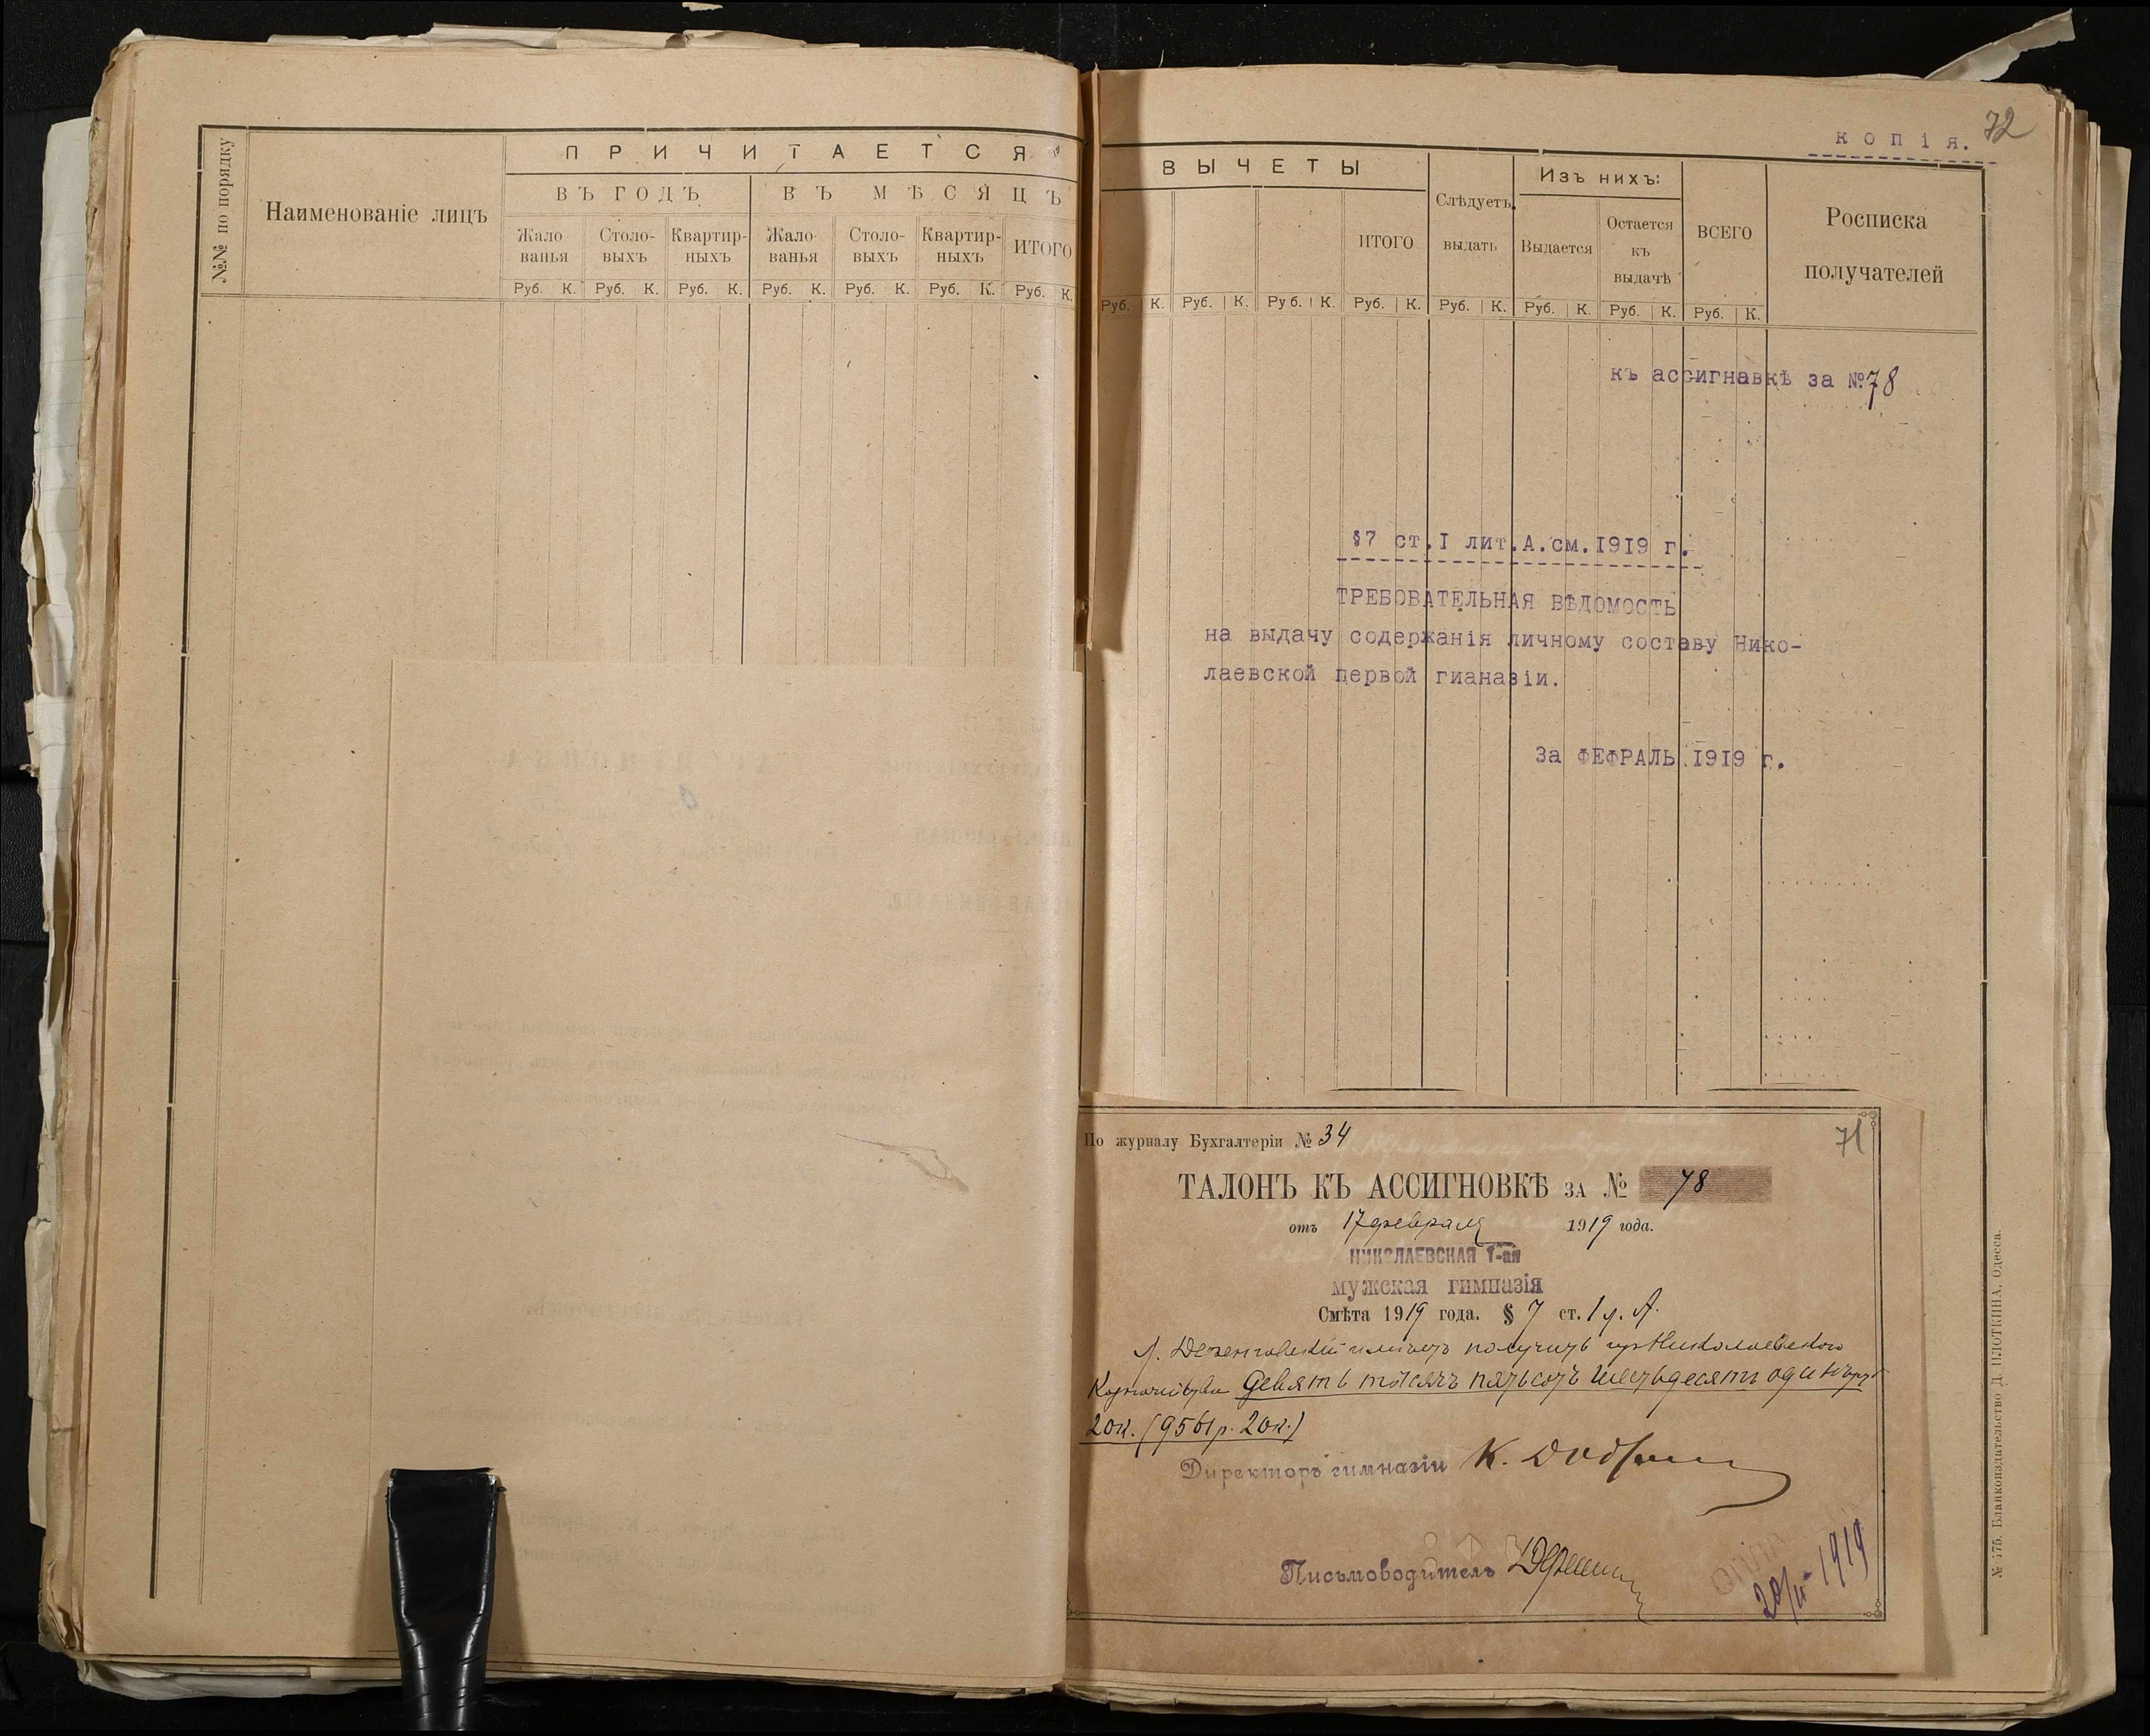 №№ по порядку
Наименованіе лицъ
ПРИЧИТАЕТСЯ
ВЪ ГОДЪ
ВЪ МѢСЯЦЪ
Жало-
ванья
Столо-
выхъ
Квартир-
ныхъ
Жало-
ванья
Столо-
выхъ
Квартир-
ныхъ
ИТОГО
Руб. К. Руб. К. Руб. К. Руб. К. Руб. К. Руб. К. Руб. К.
72
копія.
ВЫЧЕТЫ
ИТОГО
Слѣдуетъ
выдать
Изъ нихъ:
Выдается
Остается
къ
выдачѣ
ВСЕГО
Росписка
получателей
Руб. К. Руб. К. Руб. К. Руб. К. Руб. К. Руб. К. Руб. К. Руб. К.
къ ассигнавкѣ за №78
§7 ст.I лит.А.см.I9I9 г.
ТРЕБОВАТЕЛЬНАЯ ВѢДОМОСТЬ
на выдачу содержанія личному составу Нико-
лаевской первой гианазіи.
За ФЕФРАЛЬ I9I9 г.
По журналу Бухгалтеріи № 34
71
ТАЛОНЪ КЪ АССИГНОВКѢ ЗА № 78
отъ 17 февраля 1919 года.
НИКОЛАЕВСКАЯ 1-ая
мужская гимназія
Смѣта 1919 года. § 7 ст. 1 л. А.
имѣетъ получить изъ Николаевского
Казначейства Девять тысячъ пятьсотъ шестьдесятъ одинъ р.
20к. (9561р. 20к.)
Директоръ гимназіи К.
Письмоводитель
20/II 1919
№ 175. Бланкоиздательство Д. ПЛОТКИНА. Одесса.